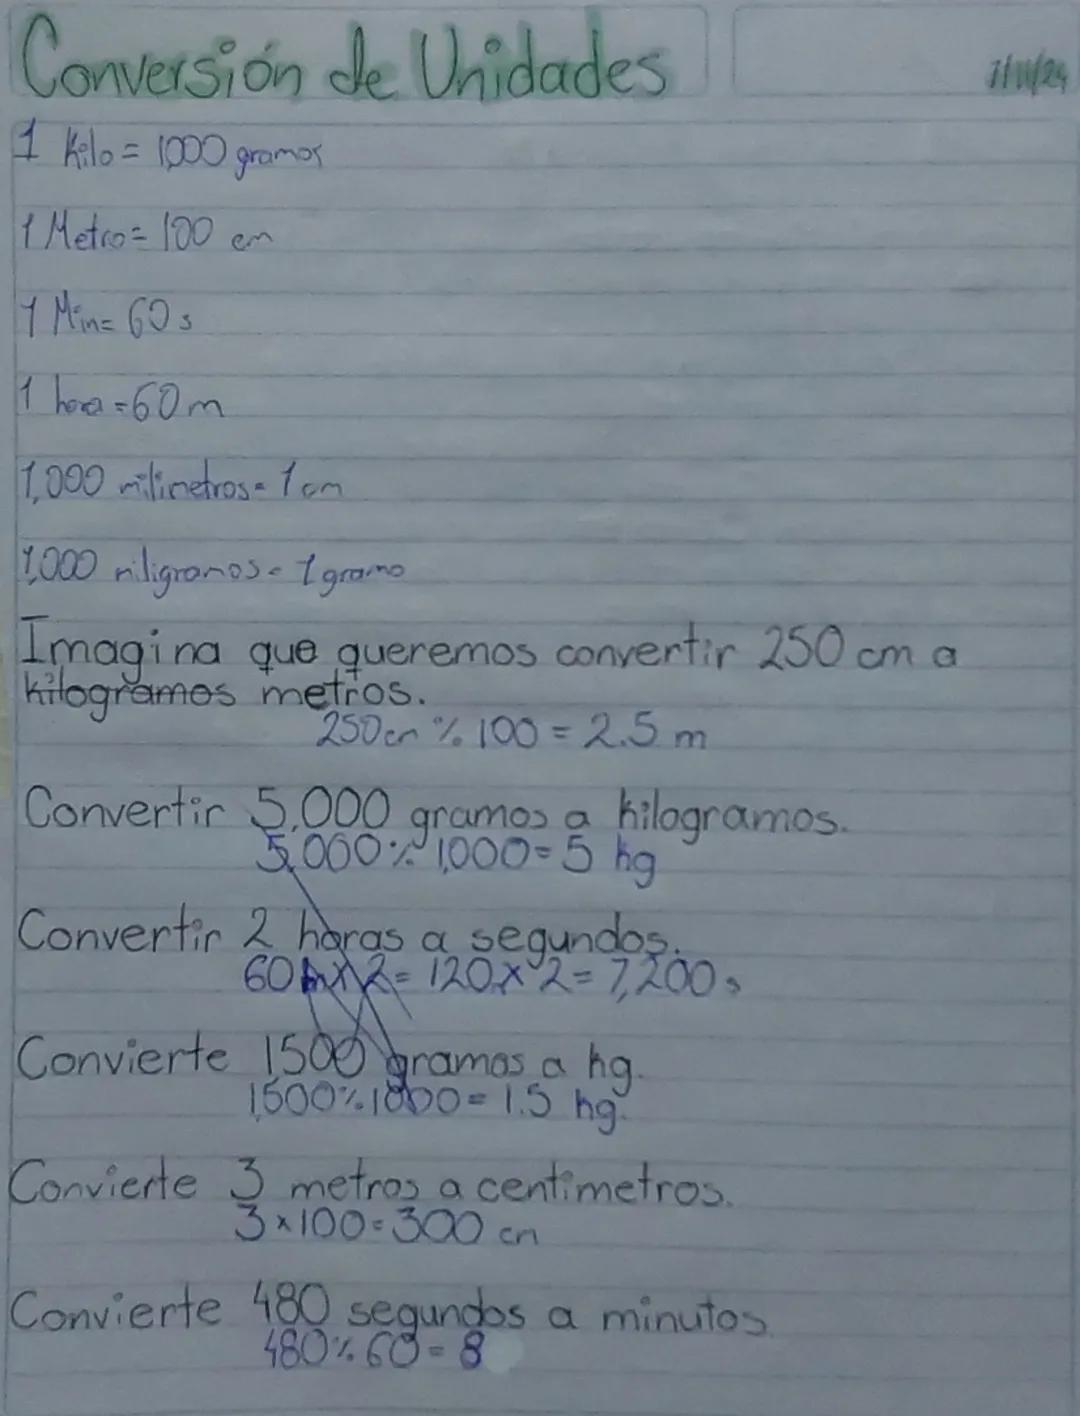 Conversión de Unidades
7/11/24
1 Kilo = 1,000 gramos
1 Metro = 100 cm
1 Min = 60 s
1 hora = 60 m
1,000 milimetros = 1 cm
1,000 miligramos = 1 gramo
Imagina que queremos convertir 250 cm a
kilogramos metros.
250 cm % 100 = 2.5 m
Convertir 5,000 gramos a kilogramos.
5,000 % 1,000 = 5 kg
Convertir 2 horas a segundos.
60 x 2 = 120 x 2 = 7,200 s
Convierte 1500 gramos a kg.
1,500 % 1000 = 1.5 kg.
Convierte 3 metros a centimetros.
3 x 100 = 300 cm
Convierte 480 segundos a minutos
480 % 60 = 8